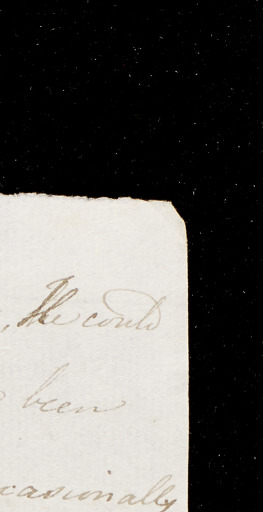 , He could
been
casionally